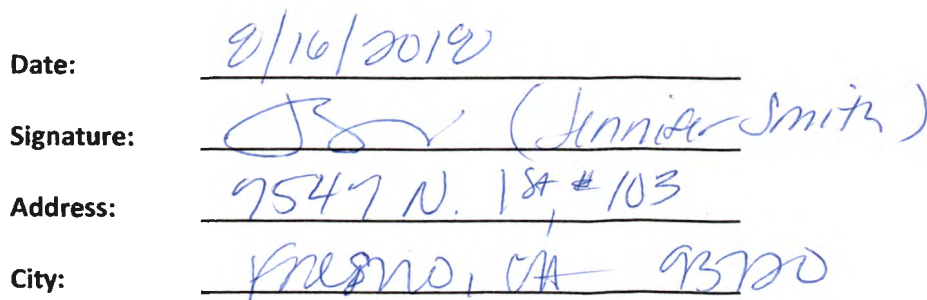 Date: 8/16/2018
Signature: (Jennifer Smith)
Address: 7547 N. 1st, #103
City: Fresno, CA 93720